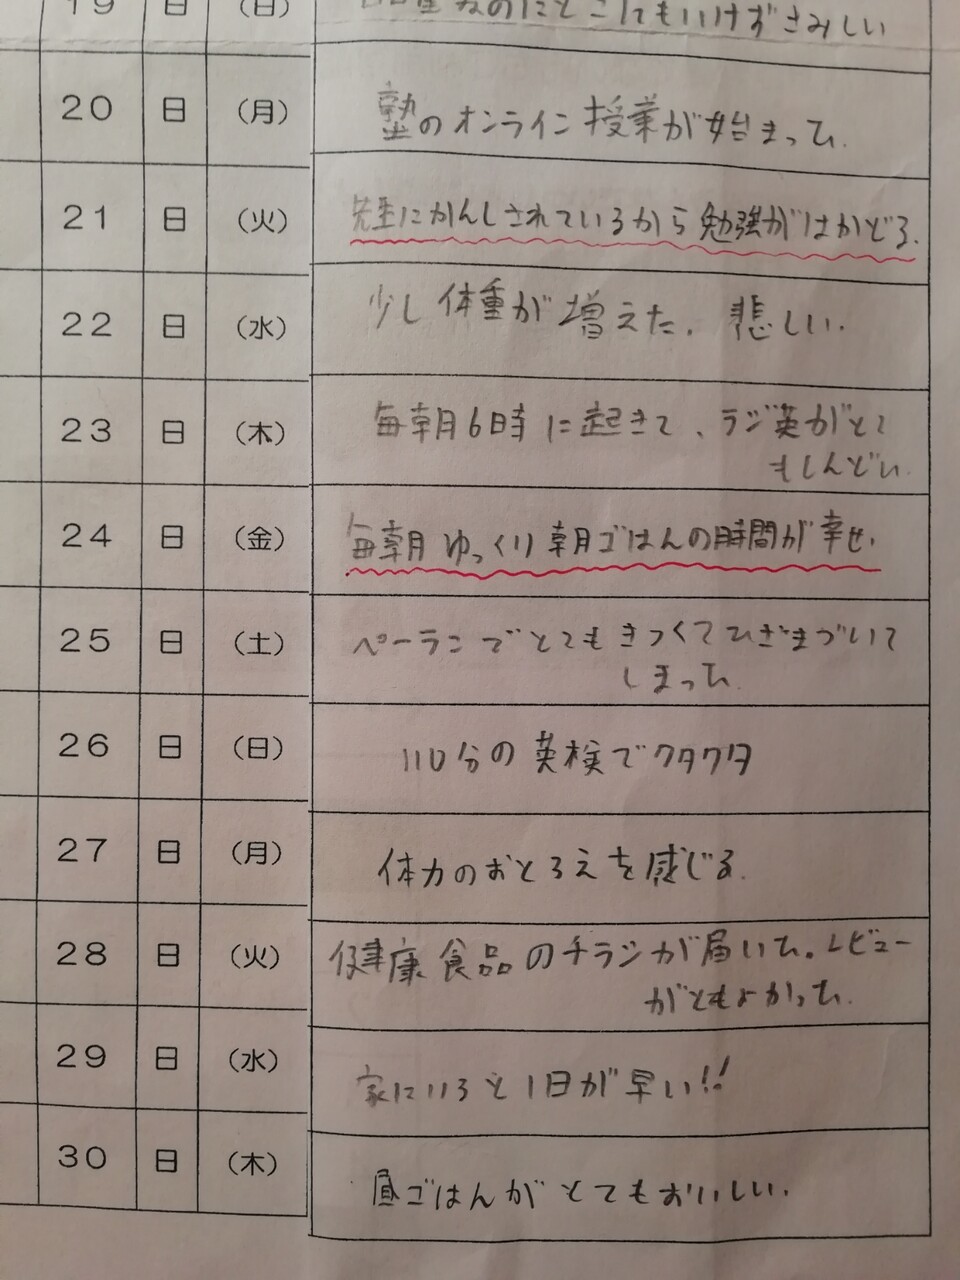 19 日 (日) なのにどこにもいけずさみしい
20 日 (月) 塾のオンライン授業が始まった.
21 日 (火) 先生にかんしされているから勉強がはかどる.
22 日 (水) 少し体重が増えた. 悲しい.
23 日 (木) 毎朝月6時に起きて、ラジ英がとて
もしんどい.
24 日 (金) 毎朝ゆっくり朝ごはんの時間が幸せ.
25 日 (土) ペーランでとてもきつくてひざまづいて
しまった.
26 日 (日) 110分の英検でクタクタ
27 日 (月) 体力のおとろえを感じる.
28 日 (火) 健康食品のチラシが届いた。レビュー
がともよかった.
29 日 (水) 家にいると1日が早い!!
30 日 (木) 昼ごはんがとてもおいしい.